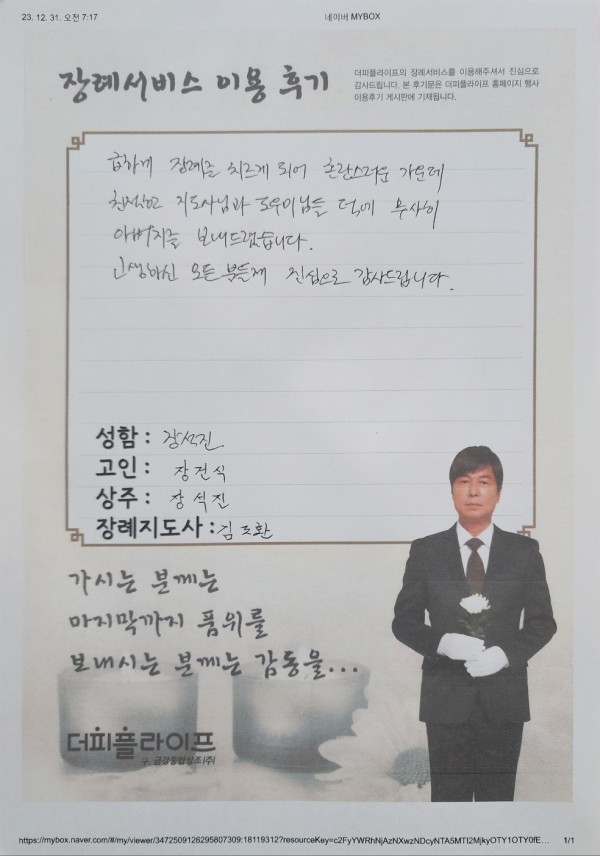 23. 12. 31. 오전 7:17
네이버 MYBOX
장례서비스 이용 후기
더피플라이프의 장례서비스를 이용해주셔서 진심으로
감사드립니다. 본 후기문은 더피플라이프 홈페이지 행사
이용후기 게시판에 기재됩니다.
급하게 장례를 치르게 되어 혼란스러운 가운데
친절하고 지도사님과 도우미님들 덕에 무사히
아버지를 보내드렸습니다.
고생하신 모든 분들께 진심으로 감사드립니다.
성함 : 장석진
고인 : 장전식
상주 : 장석진
장례지도사 : 김도환
가시는 분께는
마지막까지 품위를
보내시는 분께는 감동을...
더피플라이프
구. 금강종합상조(주)
https://mybox.naver.com/#/my/viewer/3472509126295807309:18119312?resourceKey=c2FyYWRhNjAzNXwzNDcyNTA5MTI2MjkyOTY1OTY0fE...
1/1